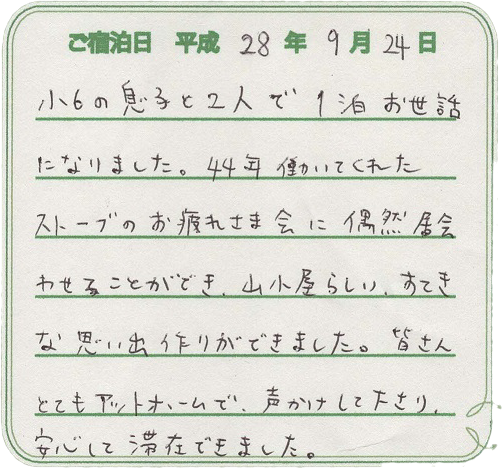 ご宿泊日 平成 28 年 9 月 24 日
小6の息子と2人で 1泊 お世話
になりました。44年 働いてくれた
ストーブの お疲れさま会 に 偶然居合
わせることができ、山小屋らしい、すてき
な 思い出 作りができました。皆さん
とても アットホームで、声かけして下さり、
安心して 滞在できました。